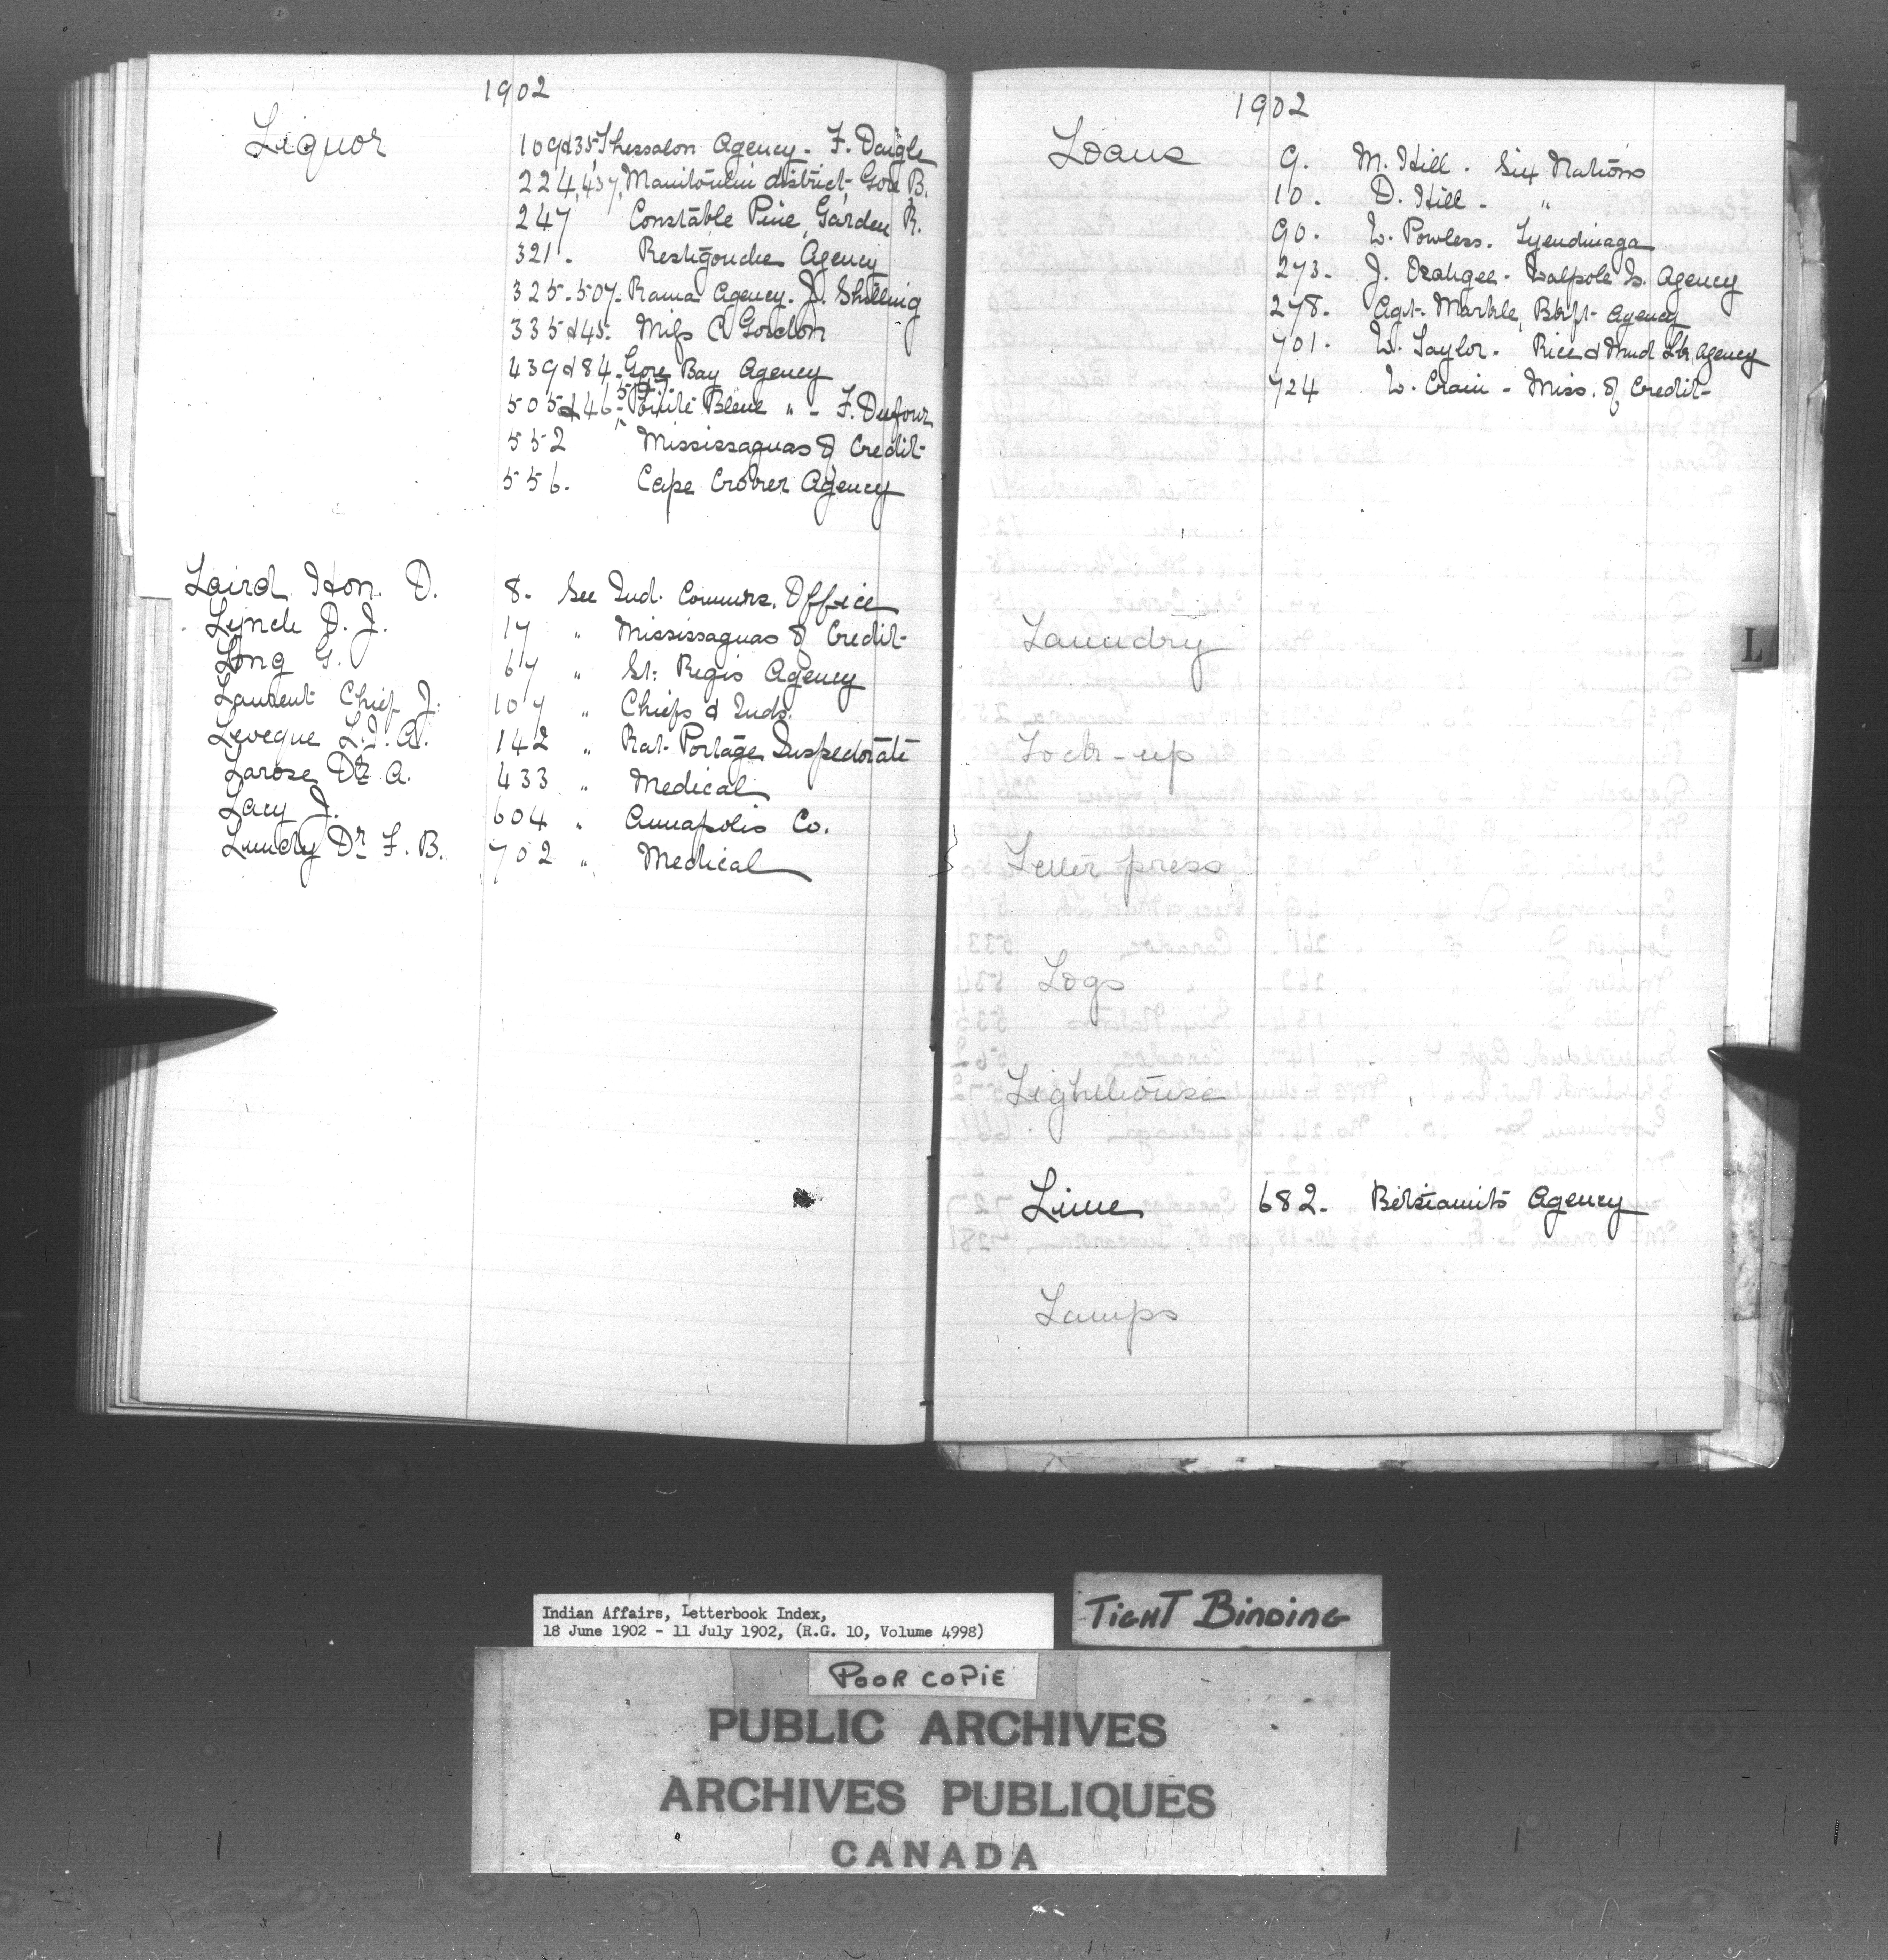 1902
Liquor
109 & 35 Thessalon Agency - F. Daigle
224, 437, Manitoulin district, Gore B.
247 Constable Pine, Garden R.
321. Restigouche Agency
325. 507. Rama Agency. J. Shilling
335 & 45. Miss C Gordon
439 & 84. Gore Bay Agency
505 & 46. Pointe Bleue " - F. Dufour
552 Mississaguas of Credit
556. Cape Croker Agency
Laird Hon. D. 8. See Ind. Commrs. Office
Lynch D. J. 17 " Mississaguas of Credit
Long G. 67 " St. Regis Agency
Laurent Chief J. 107 " Chiefs & Inds.
Leveque L.J.A. 142 " Rat Portage Inspectorate
Larose Dr A. 433 " Medical
Lacy J. 604 " Annapolis Co.
Lundy Dr F. B. 702 " Medical
1902
Loans 9. M. Hill. Six Nations
10. D. Hill - "
90. W. Powless. Tyendinaga
273. J. Walpole Is. Agency
278. Agt. Marble, Btsft Agency
701. W. Taylor. Rice & Mud Lk. Agency
724 W. Crain - Miss. of Credit
Laundry
L
Lock-up
Letter press
Logs
Lighthouse
Lime 682. Betsiamits Agency
Lamps
Indian Affairs, Letterbook Index,
18 June 1902 - 11 July 1902, (R.G. 10, Volume 4998)
TIGHT BINDING
POOR COPIE
PUBLIC ARCHIVES
ARCHIVES PUBLIQUES
CANADA